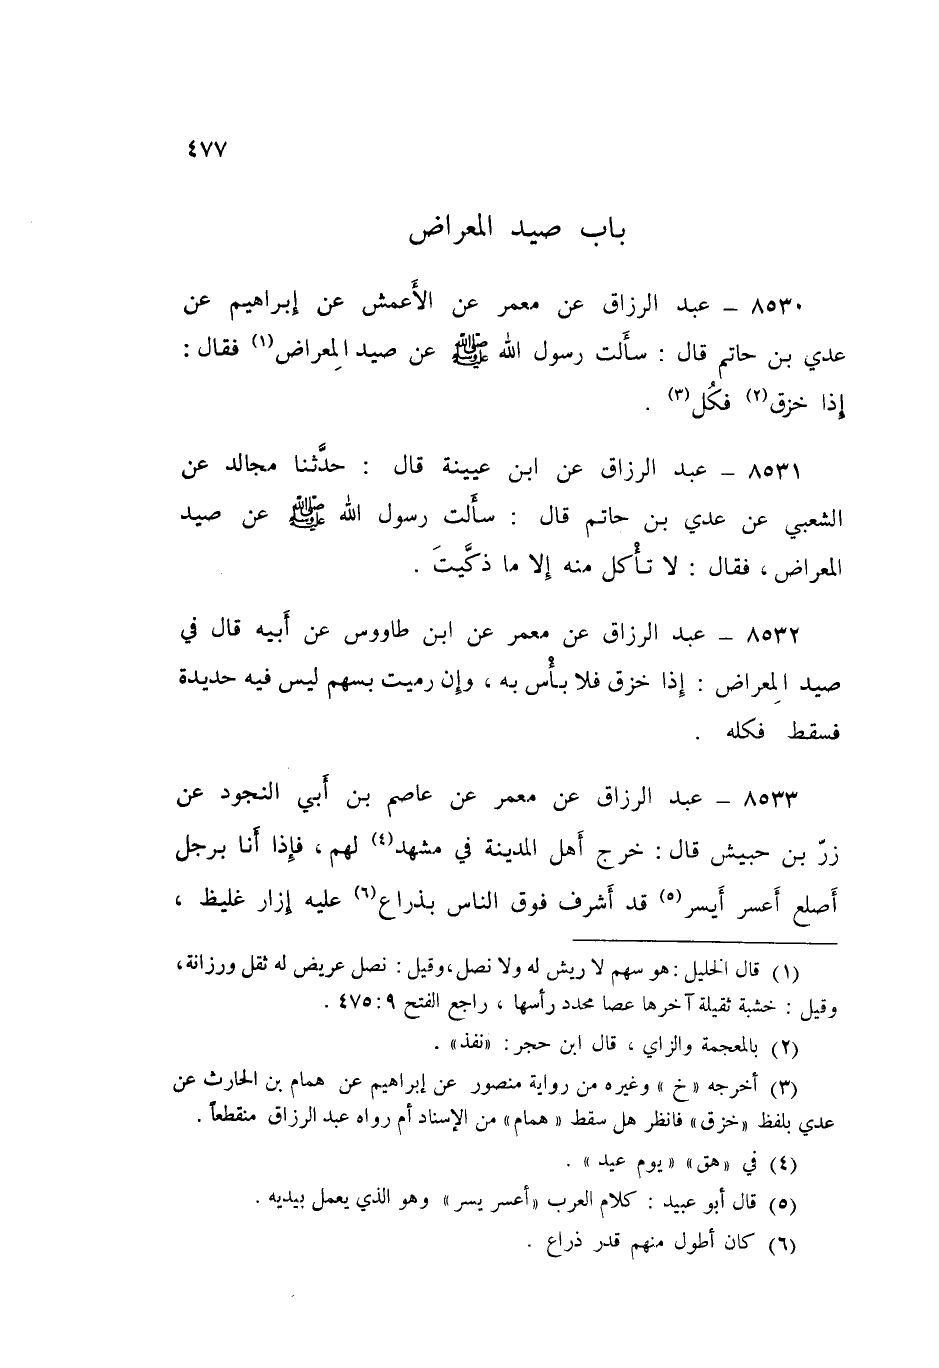 ٤٧٧
باب صيد المعراض
٨٥٣٠ – عبد الرزاق عن معمر عن الأَعمش عن إبراهيم عن
عدي بن حاتم قال : سأَلت رسول الله ﷺ عن صيد المِعراض(١) فقال :
إذا خزق(٢) فكُل(٣) .
٨٥٣١ – عبد الرزاق عن ابن عيينة قال : حدَّثنا مجالد عن
الشعبي عن عدي بن حاتم قال : سأَلت رسول الله ﷺ عن صيد
المعراض ، فقال : لا تأْكل منه إلا ما ذكَّيتَ .
٨٥٣٢ – عبد الرزاق عن معمر عن ابن طاووس عن أَبيه قال في
صيد المِعراض : إذا خزق فلا بأْس به ، وإن رميت بسهم ليس فيه حديدة
فسقط فكله .
٨٥٣٣ – عبد الرزاق عن معمر عن عاصم بن أَبي النجود عن
زرّ بن حبيش قال : خرج أَهل المدينة في مشهد(٤) لهم ، فإذا أَنا برجل
أَصلع أَعسر أَيسر(٥) قد أَشرف فوق الناس بذراع(٦) عليه إزار غليظ ،
(١) قال الخليل : هو سهم لا ريش له ولا نصل ، وقيل : نصل عريض له ثقل ورزانة ،
وقيل : خشبة ثقيلة آخرها عصا محدد رأسها ، راجع الفتح ٩ : ٤٧٥ .
(٢) بالمعجمة والزاي ، قال ابن حجر : «نفذ» .
(٣) أخرجه «خ» وغيره من رواية منصور عن إبراهيم عن همام بن الحارث عن
عدي بلفظ «خزق» فانظر هل سقط «همام» من الإسناد أم رواه عبد الرزاق منقطعاً .
(٤) في «هق» «يوم عيد» .
(٥) قال أبو عبيد : كلام العرب «أعسر يسر» وهو الذي يعمل بيديه .
(٦) كان أطول منهم قدر ذراع .